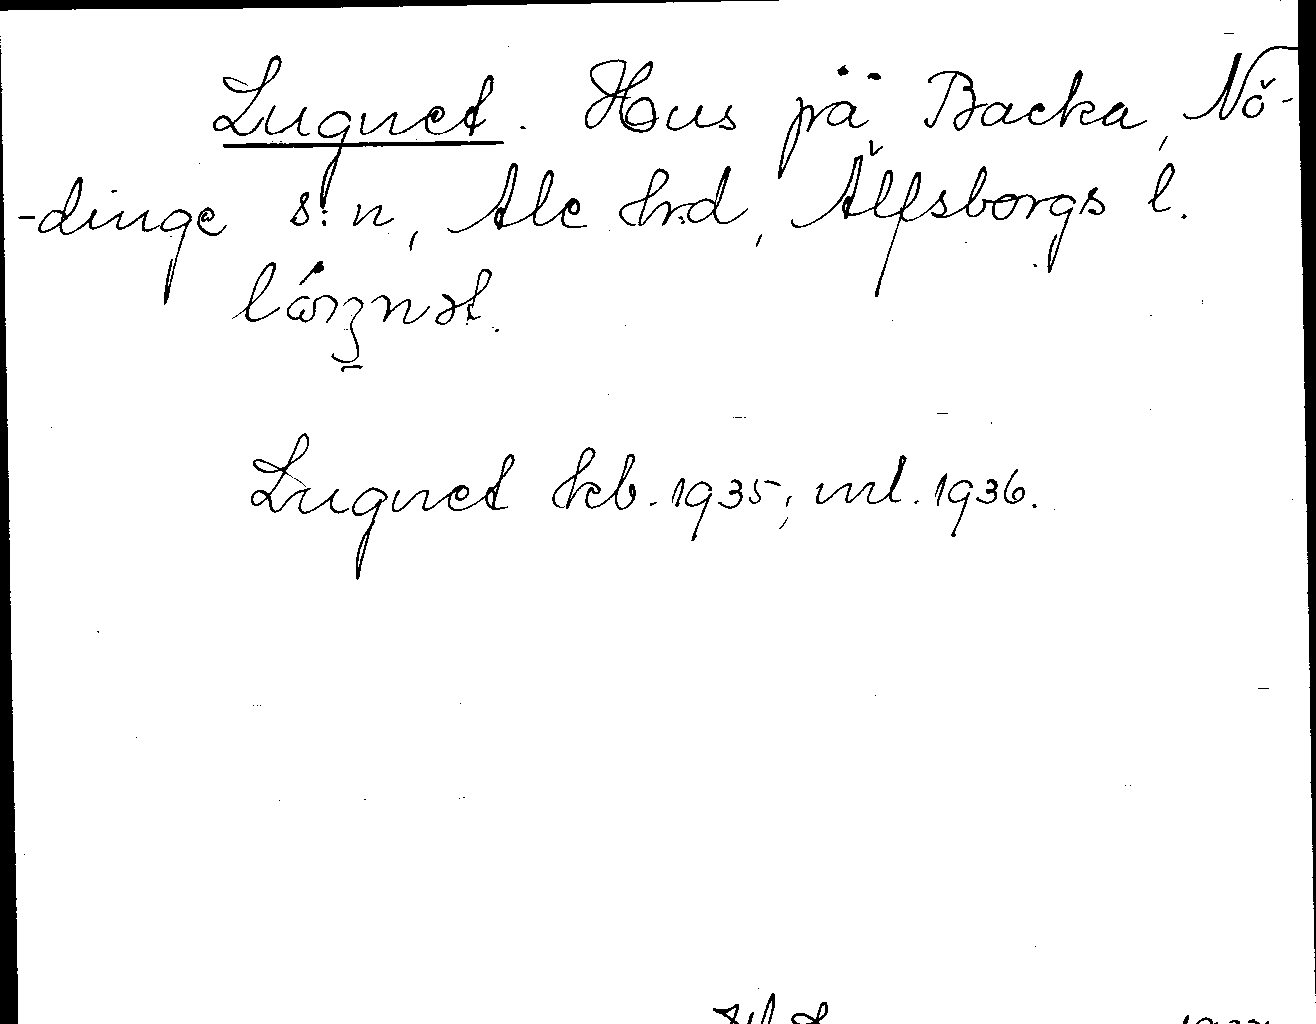 Lugnet. Hus på Backa, Nö-
-dinge s:n, Ale hrd, Älfsborgs l.
Lugnet kb. 1935; ml. 1936.